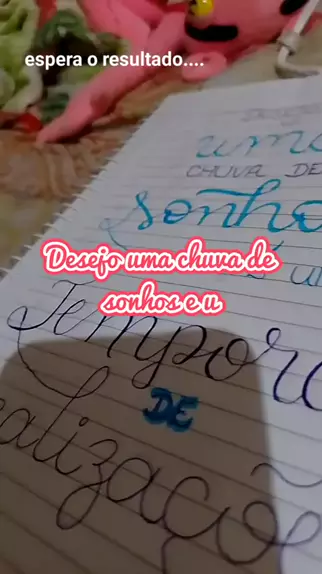 espera o resultado....
uma
CHUVA DE
sonho
Desejo uma chuva de
sonhos e u
Tempora
DE
alizaçõe